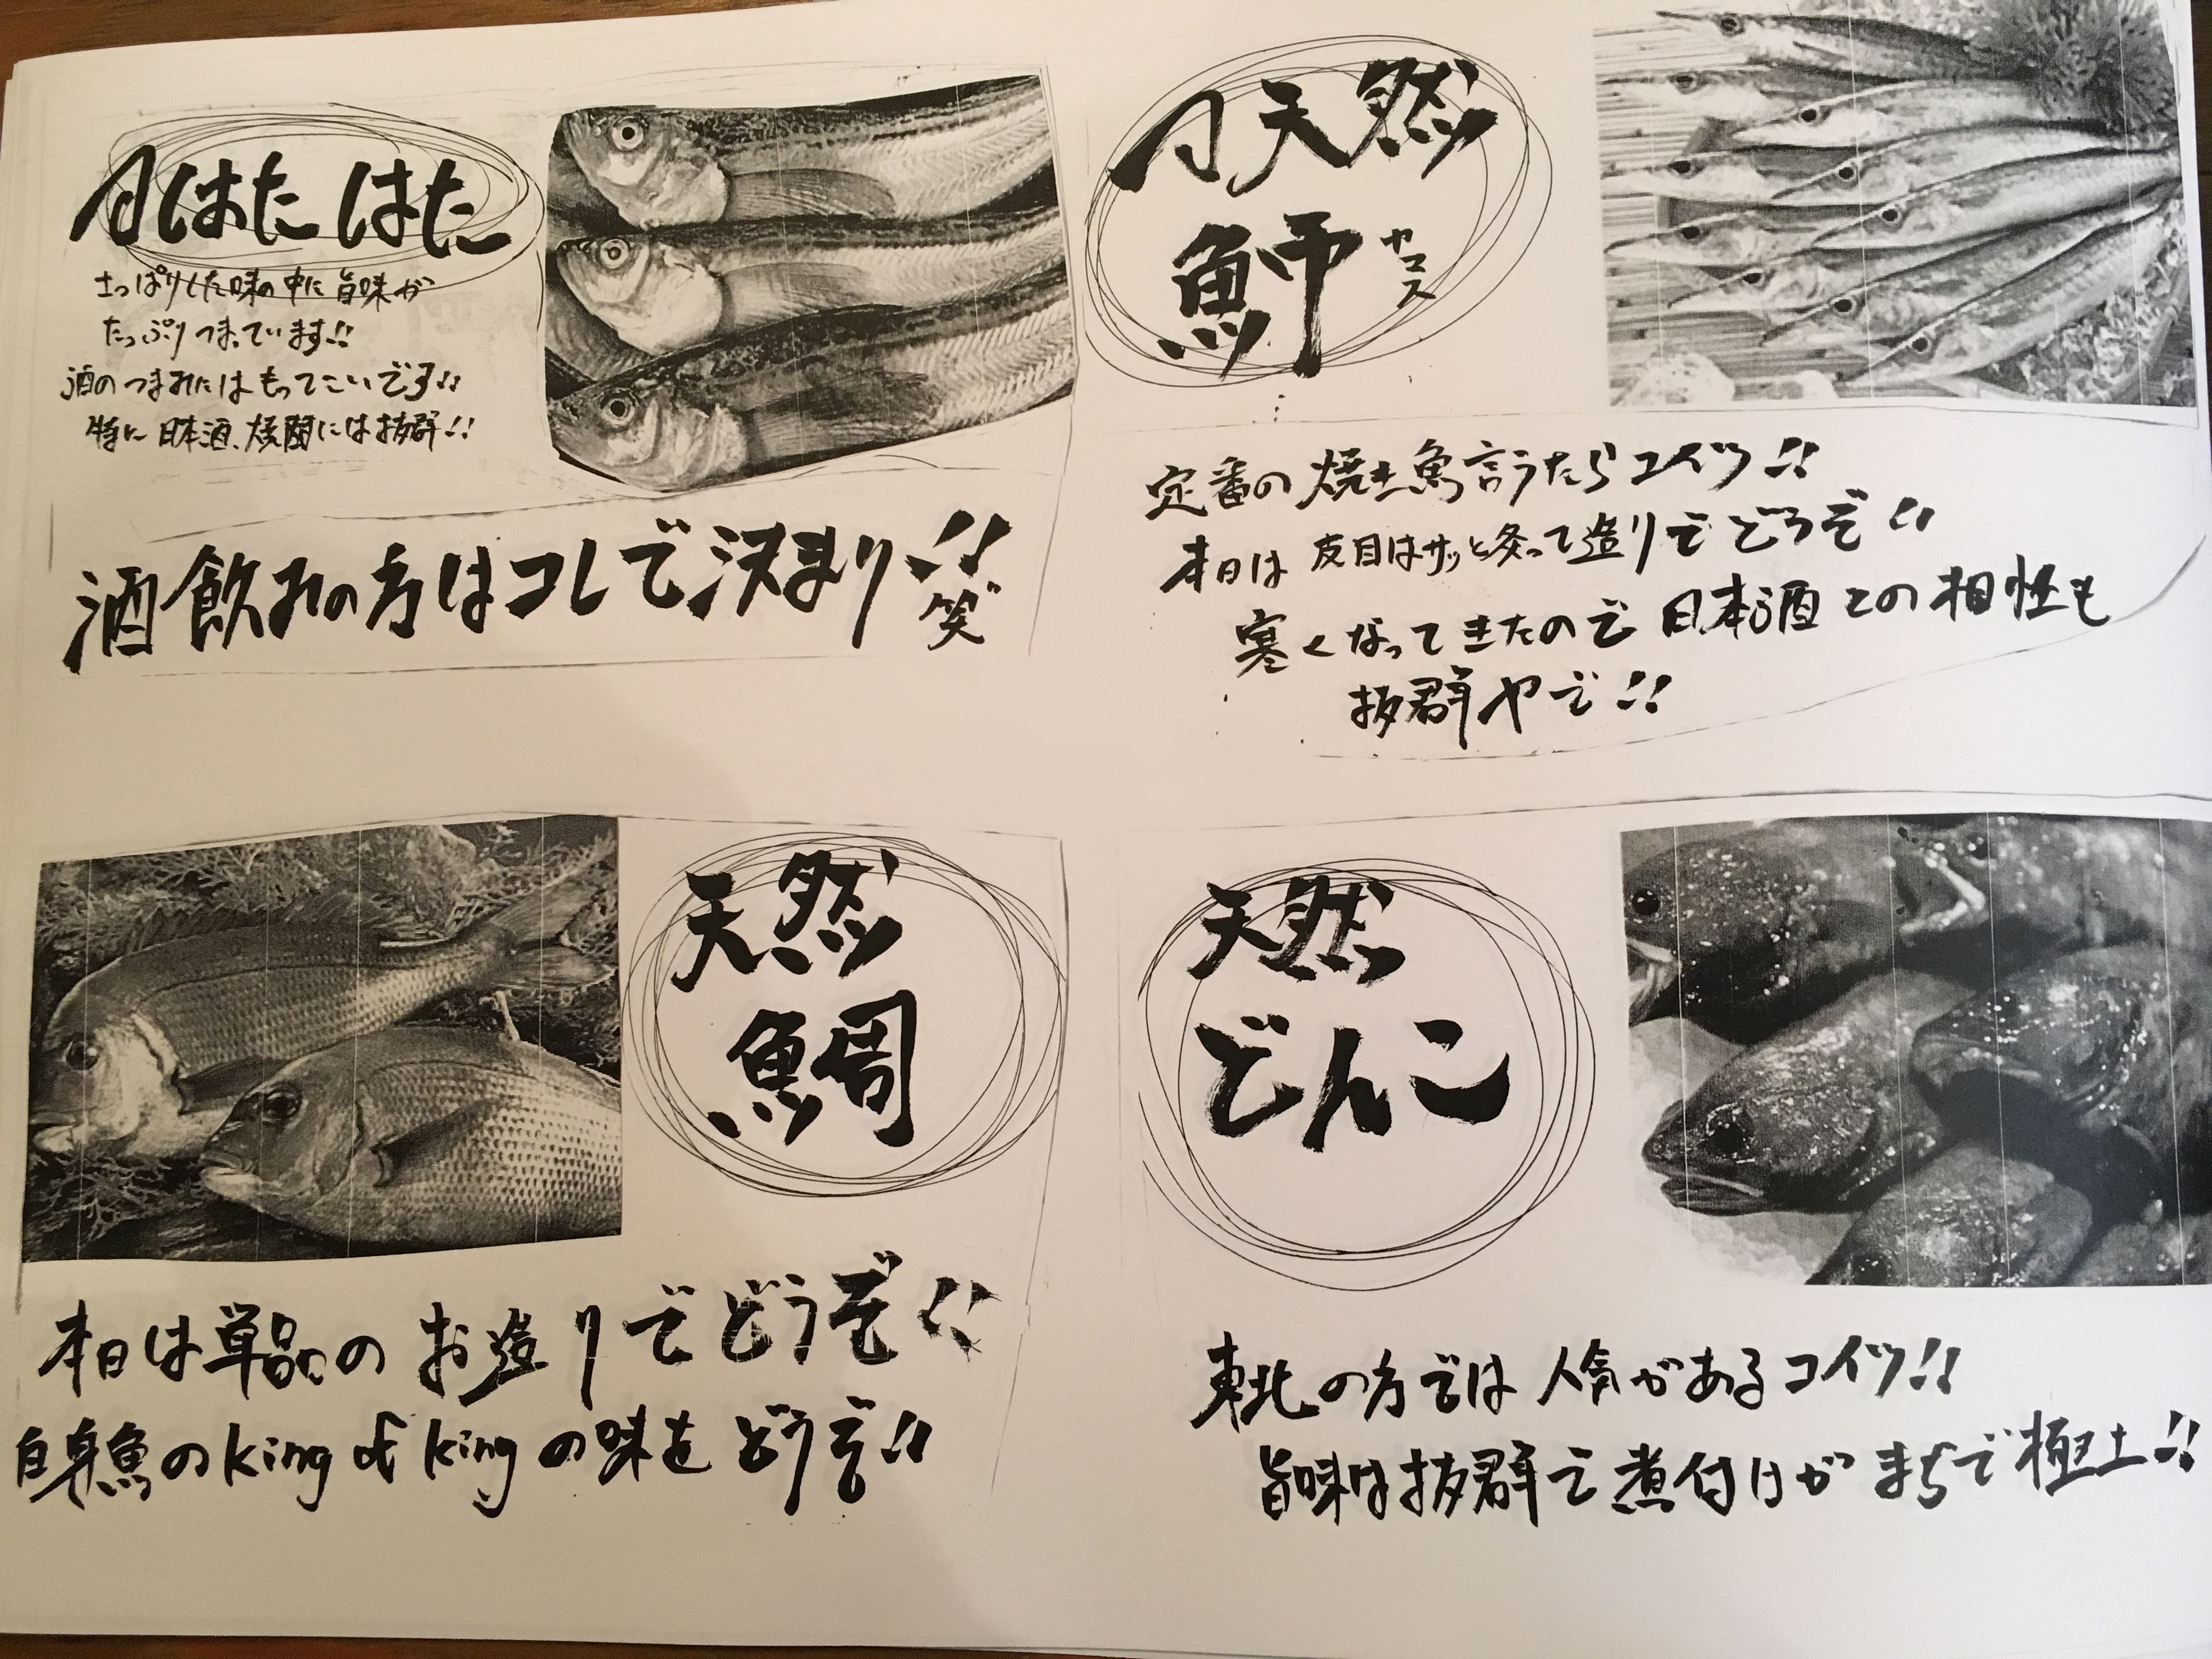 はたはた
さっぱりした味の中に旨味が
たっぷりつまっています!!
酒のつまみにはもってこいです!!
特に日本酒、燗にには抜群!!
酒飲みの方はコレで決まり!!
笑
天然
魳
カマス
定番の焼き魚言うたらコイツ!!
本日は皮目はサッと炙って造りでどうぞ!!
寒くなってきたので日本酒との相性も
抜群やで!!
天然
鯛
本日は単品のお造りでどうぞ!!
白身魚のking of kingの味をどうぞ!!
天然
どんこ
東北の方では人気があるコイツ!!
旨味は抜群で煮付けがまぢで極上!!